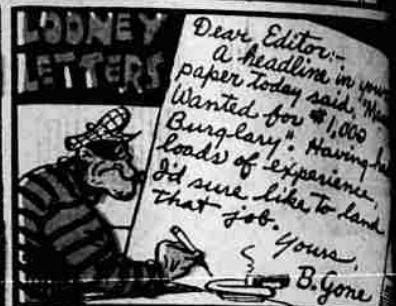 LOONEY
LETTERS
Dear Editor:-
A headline in
paper today said,
Wanted for $1,000
Burglary". Having
loads of experience,
I'd sure like to land
that job.
Yours,
B. Gone